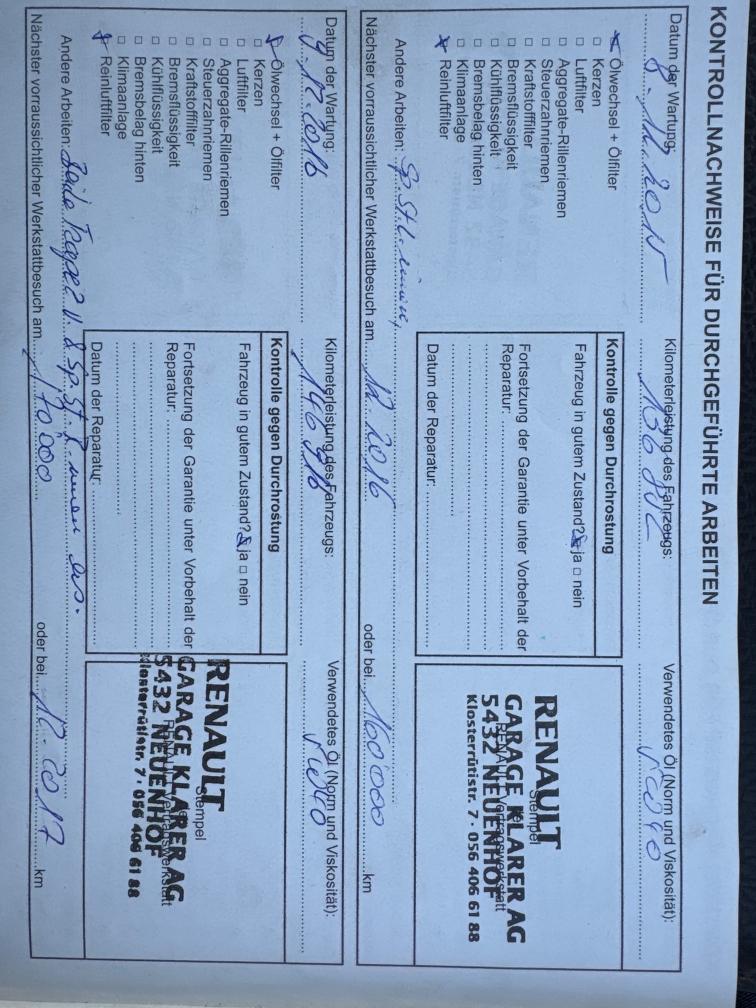 KONTROLLNACHWEISE FÜR DURCHGEFÜHRTE ARBEITEN
Datum der Wartung: 8.12.2015
Kilometerleistung des Fahrzeugs: 136
Verwendetes Öl (Norm und Viskosität): 5W40
Ölwechsel + Ölfilter
Kerzen
Luftfilter
Aggregate-Rillenriemen
Steuerzahnriemen
Kraftstofffilter
Bremsflüssigkeit
Kühlflüssigkeit
Bremsbelag hinten
Klimaanlage
Reinluftfilter
Kontrolle gegen Durchrostung
Fahrzeug in gutem Zustand? ja nein
Fortsetzung der Garantie unter Vorbehalt der
Reparatur:
Datum der Reparatur:
Stempel
RENAULT Vertragswerkstatt
RENAULT
GARAGE KLARER AG
5432 NEUENHOF
Klosterrütistr. 7 · 056 406 61 88
Andere Arbeiten: Sp. St.
Nächster vorraussichtlicher Werkstattbesuch am 12.2016 oder bei 160'000 km
Datum der Wartung: 9.12.2016
Kilometerleistung des Fahrzeugs: 146 916
Verwendetes Öl (Norm und Viskosität): 5W40
Ölwechsel + Ölfilter
Kerzen
Luftfilter
Aggregate-Rillenriemen
Steuerzahnriemen
Kraftstofffilter
Bremsflüssigkeit
Kühlflüssigkeit
Bremsbelag hinten
Klimaanlage
Reinluftfilter
Kontrolle gegen Durchrostung
Fahrzeug in gutem Zustand? ja nein
Fortsetzung der Garantie unter Vorbehalt der
Reparatur:
Datum der Reparatur:
Stempel
RENAULT Vertragswerkstatt
RENAULT
GARAGE KLARER AG
5432 NEUENHOF
Klosterrütistr. 7 · 056 406 61 88
Andere Arbeiten: Beide V. & Sp. St.
Nächster vorraussichtlicher Werkstattbesuch am 170'000 oder bei 12.2017 km